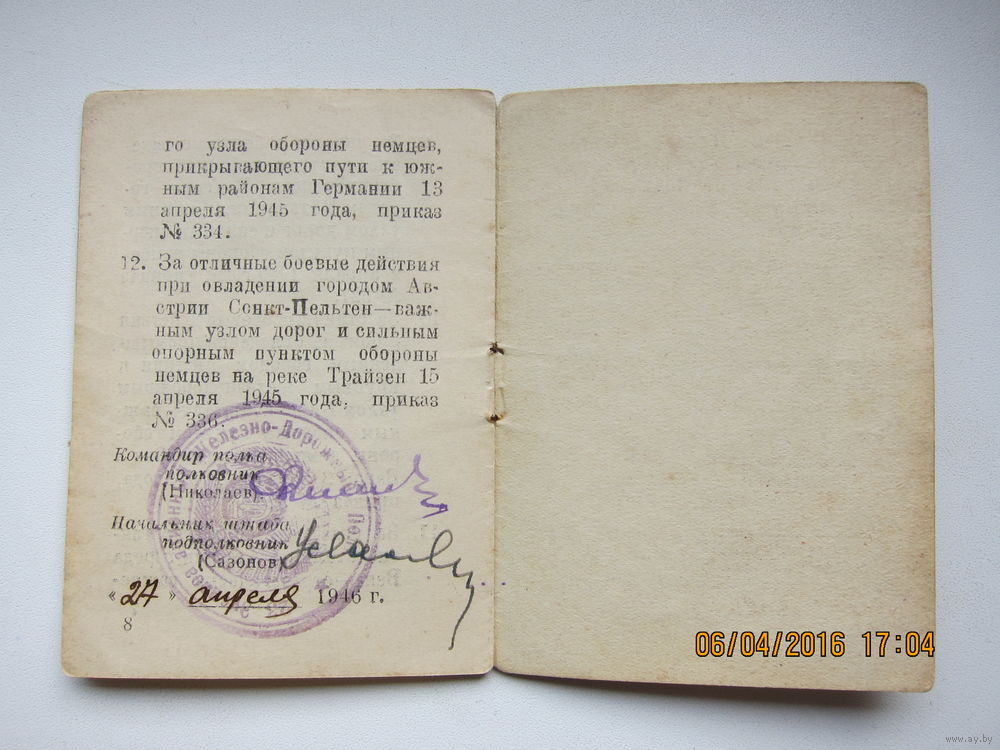 го узла обороны немцев,
прикрывающего пути к юж-
ным районам Германии 13
апреля 1945 года, приказ
№ 334.
12. За отличные боевые действия
при овладении городом Ав-
стрии Сснкт-Пельтен—важ-
ным узлом дорог и сильным
опорным пунктом обороны
немцев на реке Трайзен 15
апреля 1945 года, приказ
№ 336.
Железно-Дорожный
Командир полка
полковник
(Николаев)
Начальник штаба
подполковник
(Сазонов)
«27» апреля 1946 г.
8
06/04/2016 17:04
www.ay.by